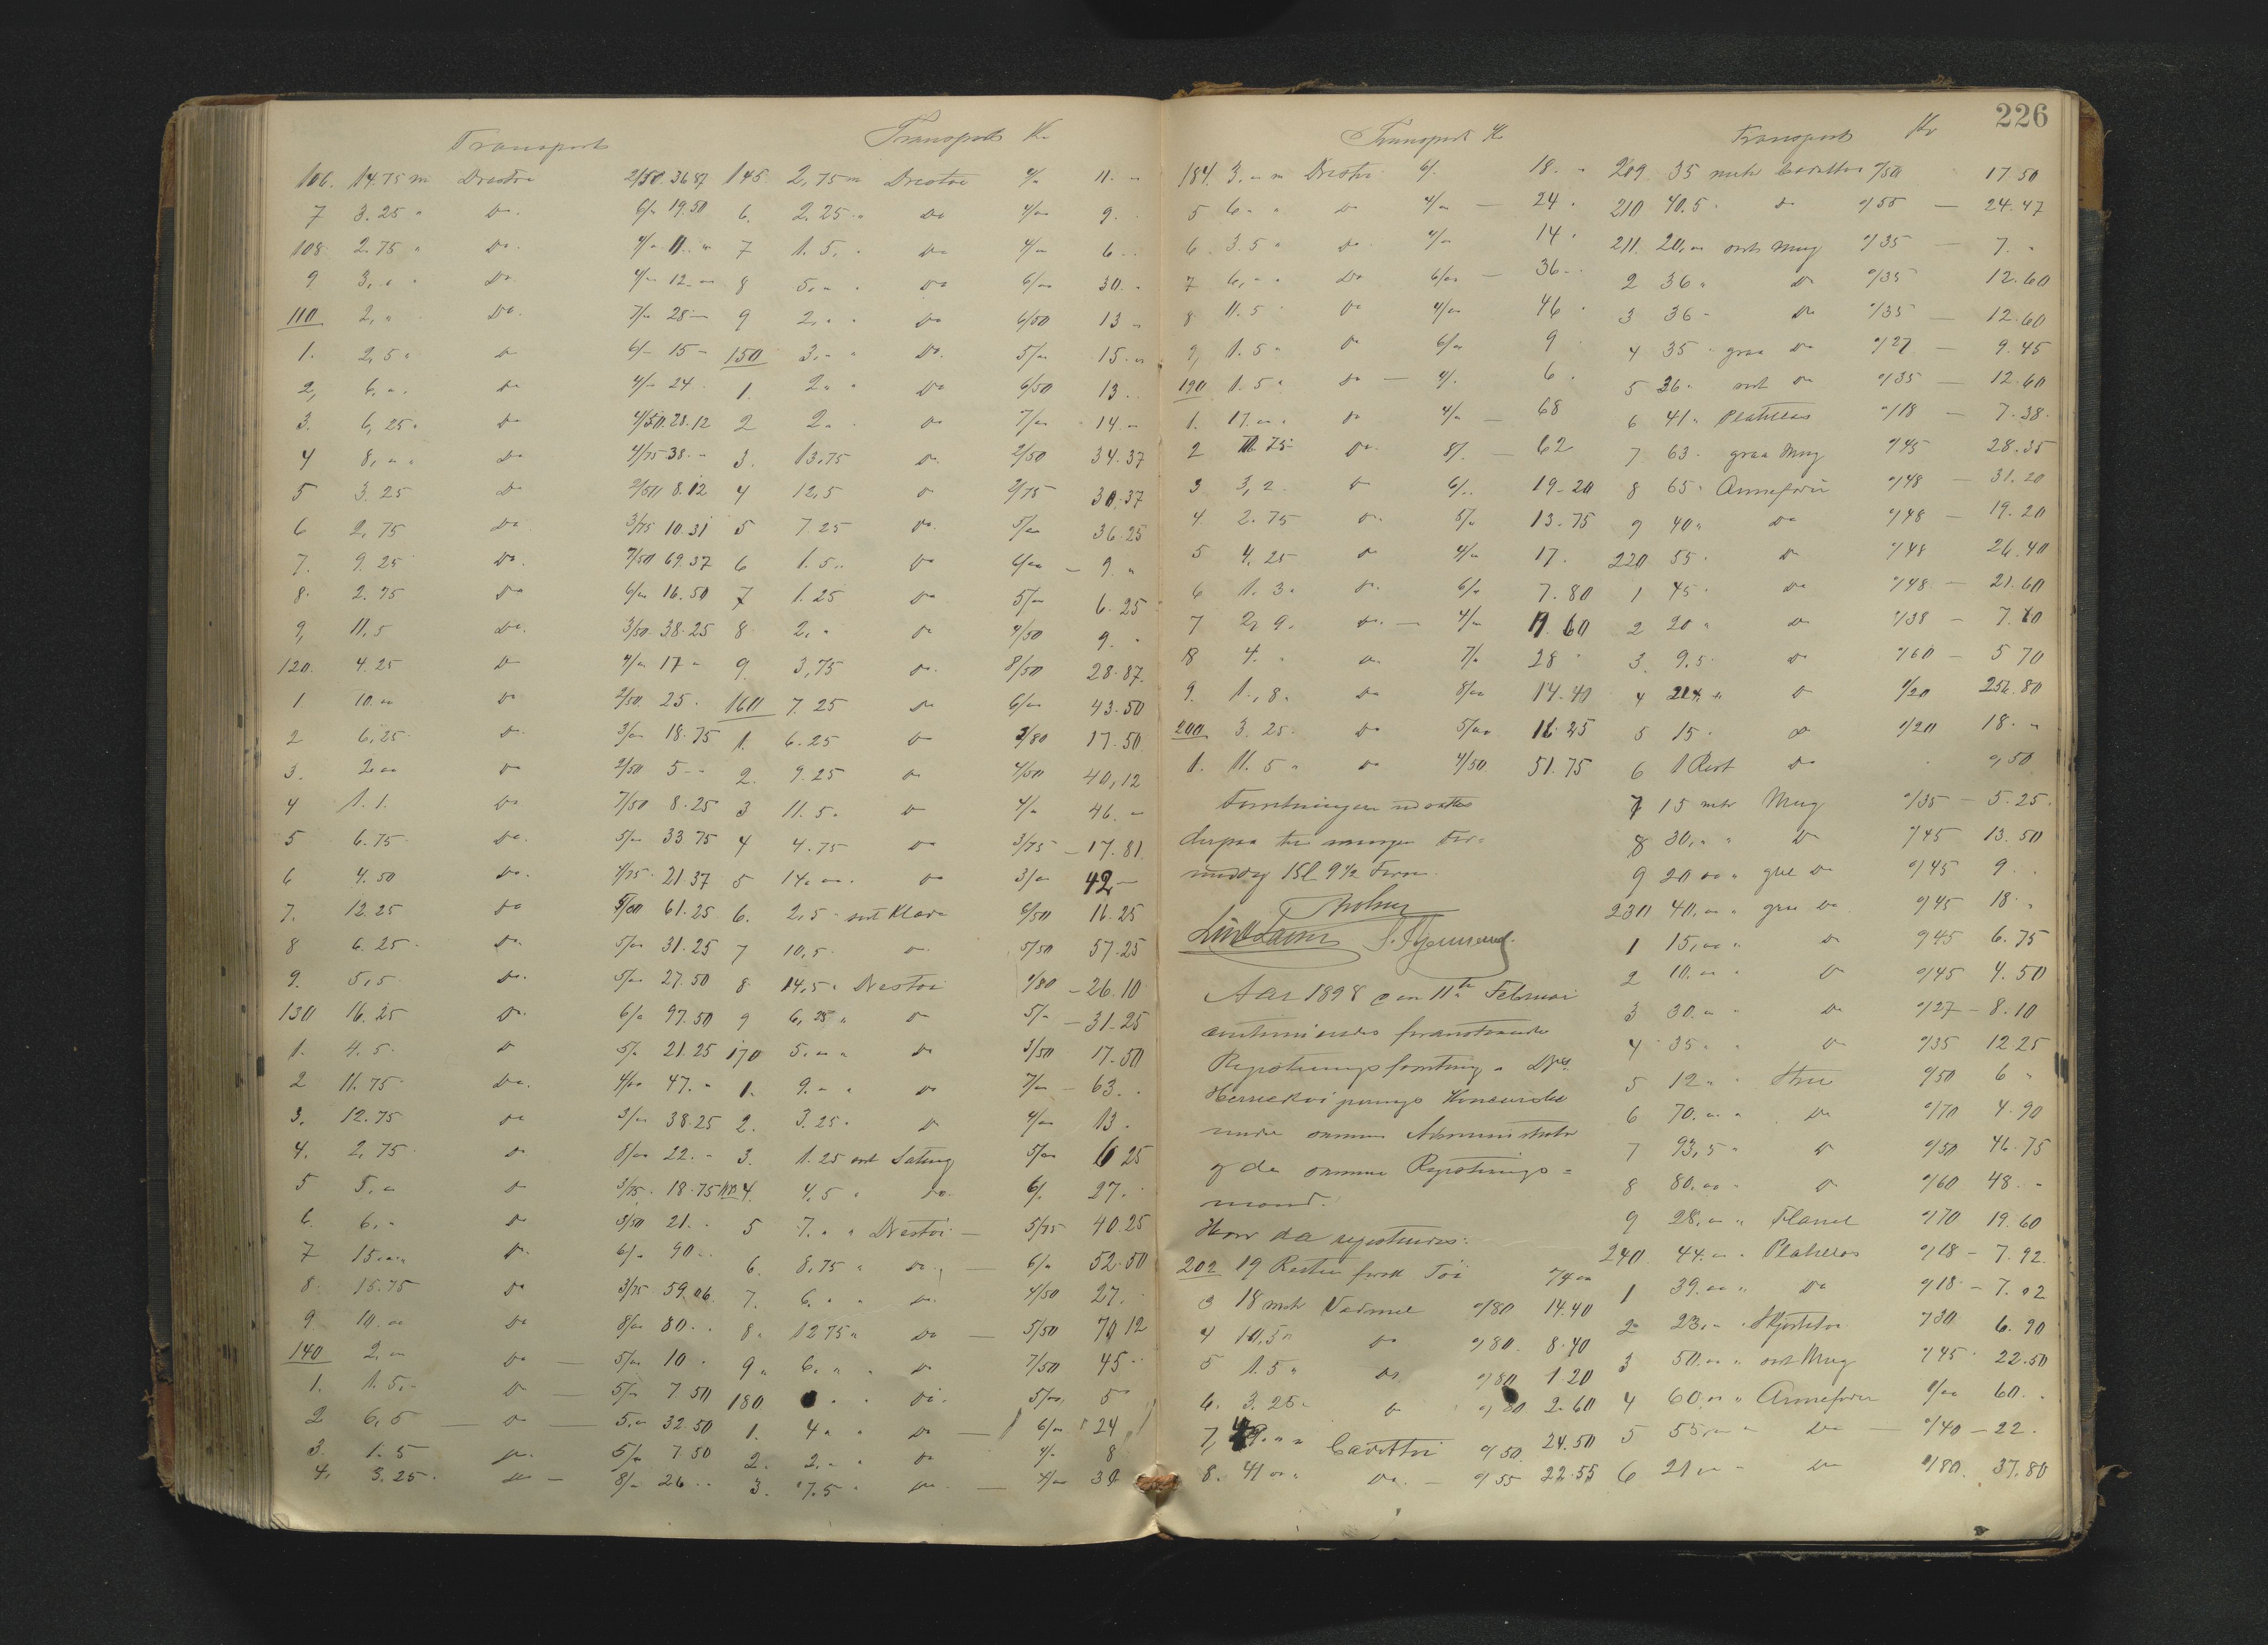 226
Transport
106. 14.75 m Drestøi 2/50 36 87
7 3.25 " Do. 6/" 19.50
108. 2.75 " Do. 4/" 11. "
9 3, " " Do. 4/" 12 "
110 2, " Do. 7/" 28 —
1. 2,5 " Do 6/" 15 —
2, 6, ". Do 4/" 24.
3. 6,25 " Do 4/50. 28.12
4 8, " " Do 4/75 38. —
5 3.25 Do 2/50 8.12
6 2,75 Do 3/75 10.31
7. 9.25 Do. 7/50 69.37
8. 2.75 Do 6/" 16.50
9, 11,5 Do. 3/50. 38.25
120. 4.25 Do 4/" 17 "
1 10. " Do 2/50. 25.
2 6,25 Do. 3/" 18.75
3. 2. " Do 2/50 5 — "
4 1. 1. Do 7/50 8.25
5 6.75 Do. 5/" 33 75
6 4.50 Do. 4/75. 21 37
7. 12.25 Do 5/00 61.25
8 6.25 Do. 5/" 31.25
9. 5,5 Do. 5/" 27.50
130 16.25 Do. 6/" 97.50
1. 4.5. Do 5/" 21.25
2 11.75 Do. 4/" 47. "
3. 12.75 Do 3/" 38.25
4. 2,75 Do 8/" 22. —
5 5. " Do 3/75. 18.75
6. 6, " Do 3/50 21. "
7 15. " Do. 6/" 90 ..
8. 15.75 Do 3/75 59.06.
9 10. " Do 8/" 80 ..
140 2, " Do — 5/" 10 .
1. 1.5, - Do — 5/" 7.50
2 6,5 — Do — 5." 32.50
3. 1.5 Do. 5/" 7.50
4. 3.25. Do — 8/" 26 ..
Transport Kr
145. 2,75 m Drestøi 4/" 11. —
6. 2.25 " Do 4/" 9.
7 1.5. " Do 4/" 6 ..
8 5, " . Do 6/" 30. "
9 2, " . Do 6/50 13 "
150 3, " " Do. 5/" 15. "
1. 2 " " Do 6/50 13 ..
2 2 " . Do 7/" 14. "
3. 13,75 Do. 2/50 34.37
4 12,5 Do 2/75 30,37
5 7.25 Do. 5/" 36.25
6 1.5 .. Do 6/" — 9. "
7 1.25 Do 5/" 6.25
8 2, " Do 4/50 9. "
9. 3,75 Do. 8/50 28.87.
160 7.25 Do 6/" 43.50
1. 6.25 Do 2/80 17.50
2. 9.25 Do 4/50 40,12
3 11.5. Do 4/" 46. "
4 4.75 Do 3/75 — 17.81.
5 14. " . Do 3/" 42 —
6. 2,5 " sort Klæde 6/50 16.25
7 10,5. Do. 5/50 57.25
8. 14,5 " Drestøi 1/80 — 26.10
9 6,25 " Do 5/" — 31.25
170 5. " " Do 3/50 17.50
1. 9. " " Do 7/" — 63. .
2. 3.25 " Do 4/" 13.
3. 1.25 sort Sateng 5/" 6 25
4. 4,5 " Do. 6/. 27.
5 7. " " Drestøi — 5/75 40.25
6. 8,75 " Do. — 6/" 52.50
7. 6. " " Do. 4/50 27.
8. 12 75 " Do — 5/50 70 12
9. 6, " . Do 7/50 45 "
180 Do. 5/" 5
1. 4 " " Do — 6/" 24
2. 2, " " Do 4/. 8
3. 7.5 " Do. — 4/" 30
Transport Kr
184. 3. " m Drestøi 6/. 18. "
5 6 " " Do 4/" — 24 .
6. 3.5 " Do. 4/" 14 .
7 6, " . Do 6/" — 36 ..
8. 11.5 Do 4/" 46 .
9, 1.5 " Do 6/" 9 .
190 1.5 " Do — 4/. 6 .
1. 17. " " Do 4/" — 68
2 Do. 8/. — 62
3 3,2. Do 6/.. 19.20
4. 2.75 Do. 5/" 13.75
5 4,25 Do 4/" 17.
6 1.3 " Do. 6/" 7.80
7 2,9. Do. — 4/" 11 60
8 4. " Do. 7/" 28 "
9. 1.,8 " Do 8/" 14.40
200 3.25. Do 5/" 16.25
1. 11.5 " Do 4/50. 51.75
Forretningen udsattes
derpaa til morgen For-
middag Kl 9½ Form.
Aar 1898 den 11te Februar
continueredes foranstaaende
Registreringsforretning i
Herreekviperings Konkursbo
under samme Administrator
og de samme Registrerings =
mænd.
Hvor da registreredes:
202 19 Rester forsk Tøi 74 "
3 18 mtr Vadmel "/80 14.40
4 10,5 " Do "/80. 8.40
5 1.5 " Do. "/80 1 20
6. 3.25 " Do "/80 2.60
7, 49. " " "/50. 24.50
8. 41 " " Do. — "/55 22.55
Transport Kr
209. 35 mtr "/50 17 50
210 40.5 " Do "/55 — 24.47
211. 20, " sort Mug "/35 — 7. "
2 36 " Do "/35 12.60
3 36 - Do "/35 — 12.60
4 35 " graa Do "/27 — 9.45
5 36 " sort Do "/35 — 12.60
6 41 " Platillas "/18 — 7.38.
7 63. graa Mug "/45 28.35
8 65 " Annefoer "/48 — 31.20
9 40 " Do "/48 — 19.20
220 55. Do "/48 26.40
1 45. Do "/48. — 21.60
2 20 " Do "/38 — 7.60
3. 9.5. Do "/60 — 5 70
4 214 " Do 1/20 256.80
5 15. Do 1/20 18. "
6 1 Rest Do "/50
7 15 mtr Mug "/35 — 5.25.
8 30, " " Do "/45 13.50
9 20 " " gul Do "/45 9 .
230 40, " " graa Do "/45 18. "
1 15, " " Do "/45 6.75
2 10. " " Do "/45 4.50
3 30. " " Do "/27 — 8.10
4 35 " " Do "/35 12 25
5 12 " " "/50 6 "
6 70. " " Do "/70 4.90
7 93,5 " Do "/50 46.75
8 80. " " Do "/60 48. "
9 28, " " Flanel "/70 19.60
240 44. " " Platillas "/18 — 7.92.
1 39. " " Do "/18 — 7.02
2 23, " Skjortetøi "/30 6.90
3 50. " " sort Mug "/45. 22.50
4 60. " " Annefoer 1/" 60. .
5 55, " " Do — "/40 — 22.
6 21 " " Do 1/80. 37.80